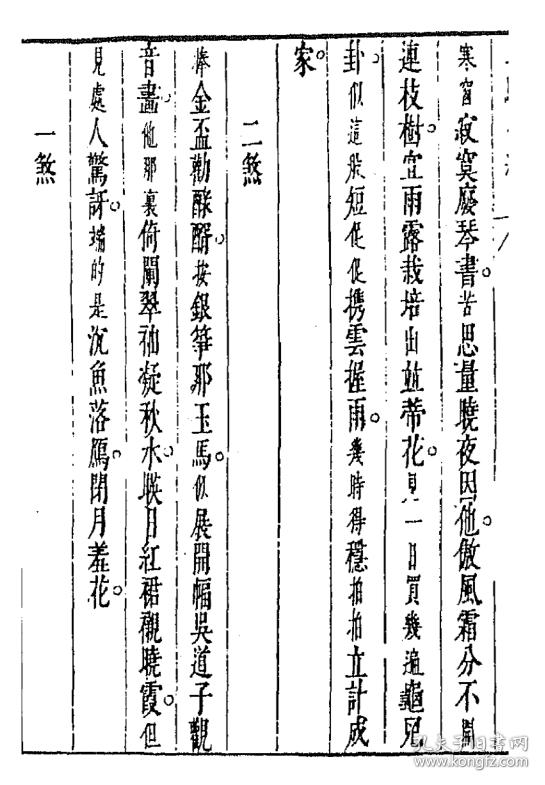 寒窗寂寞廢琴書。苦思量曉夜因他。倣風霜分不開
連枝樹。宜雨露栽培出並蒂花。見一日買幾遍龜兒
卦。似這般短促促携雲握雨。幾時得穩拍拍立計成
家。
二煞
捧金盃勸醁醑。按銀箏那玉馬。似展開幅吳道子觀
音畵。他那裏倚闌翠袖凝秋水。暎日紅裙襯曉霞。但
見處人驚訝。端的是沉魚落鴈。閉月羞花。
一煞
孔夫子旧书网
www.kongfz.com